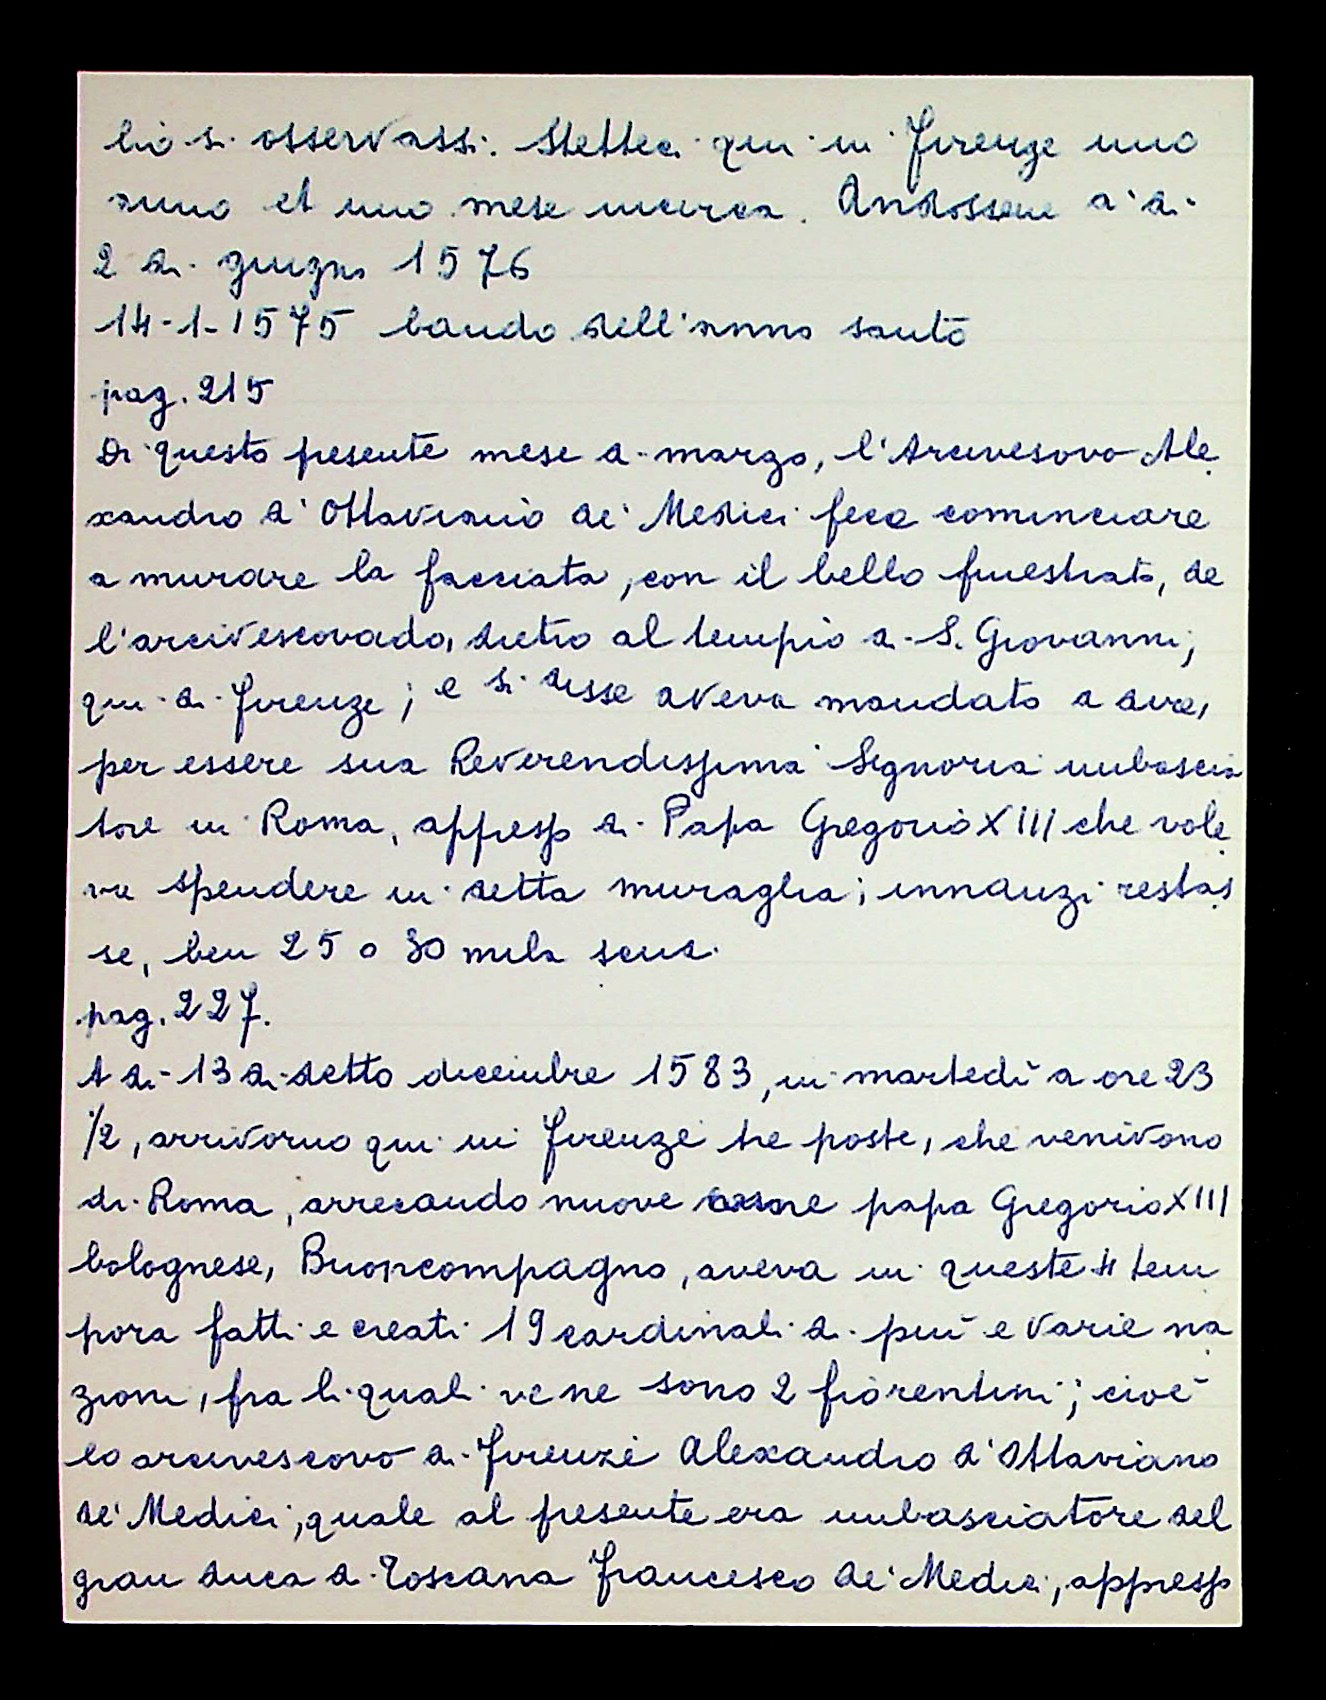 lio si osservassi. Stetteci qui in Firenze uno
anno et uno mese incirca. Andossene a' di
2 di giugno 1576
14-1-1575 bando dell'anno santo
pag. 215
Di questo presente mese di marzo, l'Arcivesovo Ale
xandro d'Ottaviano de' Medici fece cominciare
a murare la facciata, con il bello finestrato, de
l'arcivescovado, dietro al tempio di S. Giovanni,
qui di Firenze; e si disse aveva mandato a dire,
per essere sua Reverendissima Signoria imbascia
tore in Roma, appresso di Papa Gregorio XIII che vole
va spendere in detta muraglia; innanzi restas
se, ben 25 o 30 mila scudi.
pag. 227.
A di 13 di detto dicembre 1583, in martedì a ore 23
1/2, arrivorno qui in Firenze tre poste, che venivono
di Roma, arrecando nuove come papa Gregorio XIII
bolognese, Buoncompagno, aveva in queste 4 tem
pora fatti e creati 19 cardinali di più e varie na
zioni, fra li quali ve ne sono 2 fiorentini; cioè
lo arcivescovo di Firenze Alexandro d'Ottaviano
de' Medici, quale al presente era imbasciatore del
gran duca di Toscana Francesco de' Medici, appresso